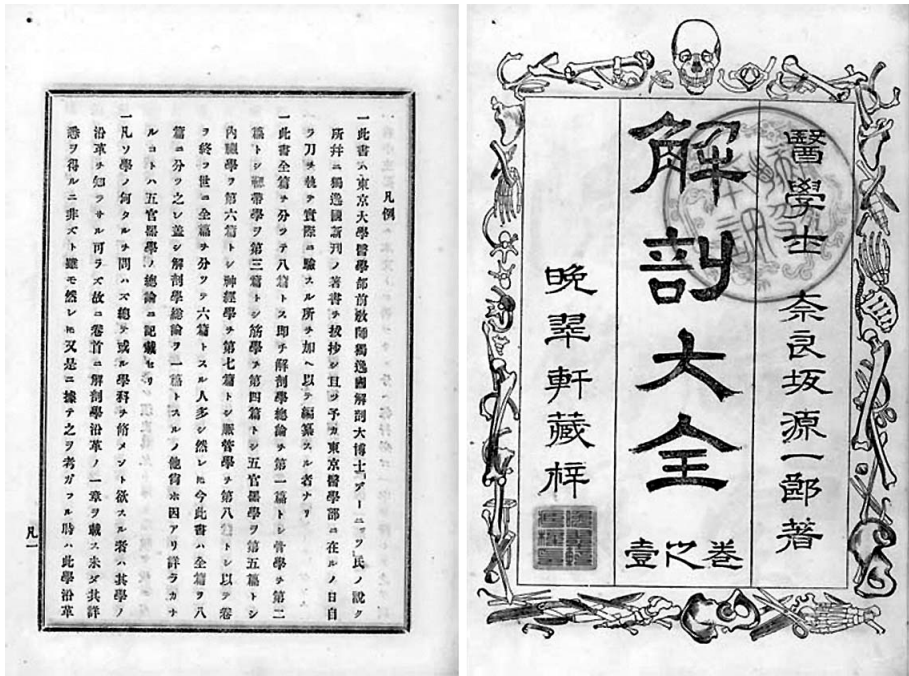 醫學士 奈良坂源一郞著
解剖大全
卷之壹
晩翠軒藏梓
凡例
一此書ハ東京大學醫學部前敎師獨逸國解剖大博士「デーニッツ」氏ノ說ク
所幷ニ獨逸國新刊ノ著書ヲ抜抄シ且ツ予カ東京醫學部ニ在ルノ日自
ラ刀ヲ執テ實際ニ驗スル所ヲ加ヘ以テ編纂スル者ナリ
一此書全篇ヲ分ツテ八篇トス卽チ解剖學總論ヲ第一篇トシ骨學ヲ第二
篇トシ靱帶學ヲ第三篇トシ筋學ヲ第四篇トシ五官器學ヲ第五篇トシ
內臟學ヲ第六篇トシ神經學ヲ第七篇トシ脈管學ヲ第八篇トシ以テ卷
ヲ終フ世ニ全篇ヲ分ツテ六篇トスル人多シ然レ𪜈今此書ハ全篇ヲ八
篇ニ分ツ之レ蓋シ解剖學總論ヲ一篇トスルノ他尙ホ因アリ詳ラカナ
ルコトハ五官器學ノ總論ニ記載セリ
一凡ソ學ノ何タルヲ問ハズ總テ或ル學科ヲ脩メント欲スル者ハ其學ノ
沿革ヲ知ラサル可ラズ故ニ卷首ニ解剖學沿革ノ一章ヲ載ス未ダ其詳
悉ヲ得ルニ非ズト雖モ然レ𪜈又是ニ據テ之ヲ考ガフル時ハ此學沿革
凡一